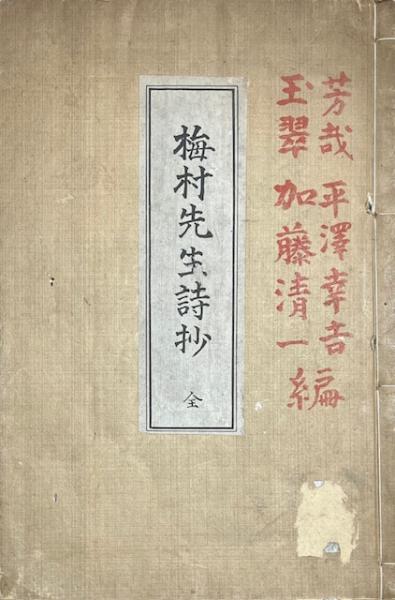 芳哉 平澤幸吉
玉翠 加藤清一 編
梅村先生詩抄 全